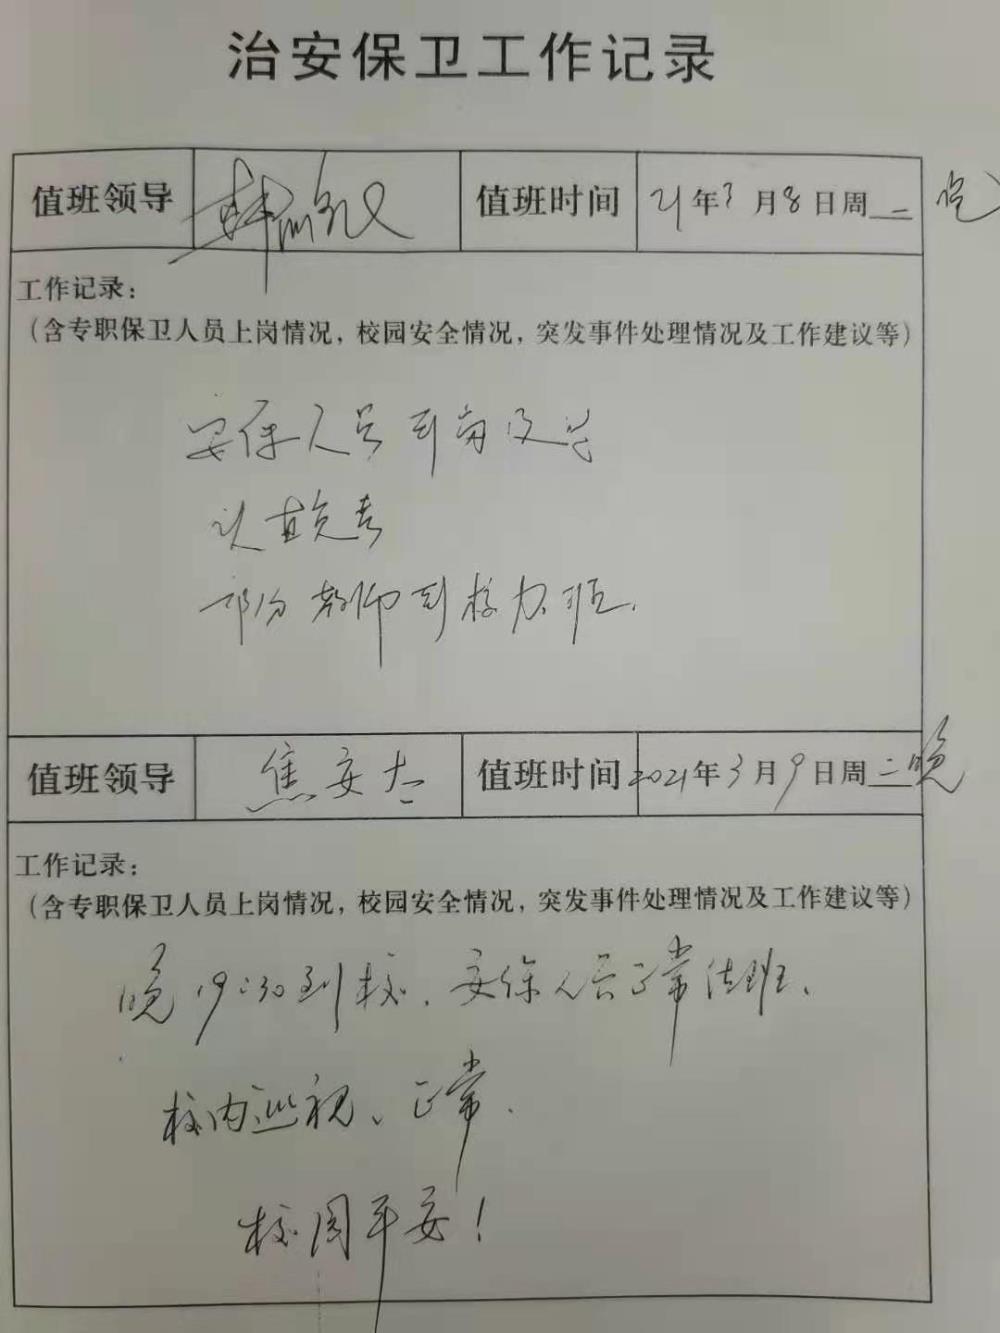 治安保卫工作记录
值班领导 值班时间 21年3月8日周二 晚
工作记录：
（含专职保卫人员上岗情况，校园安全情况，突发事件处理情况及工作建议等）
安保人员到岗及时
认真负责
部份教师到校加班.
值班领导 焦安太 值班时间 2021年3月9日周二晚
工作记录：
（含专职保卫人员上岗情况，校园安全情况，突发事件处理情况及工作建议等）
晚19:30到校.安保人员正常值班.
校内巡视、正常.
校园平安！